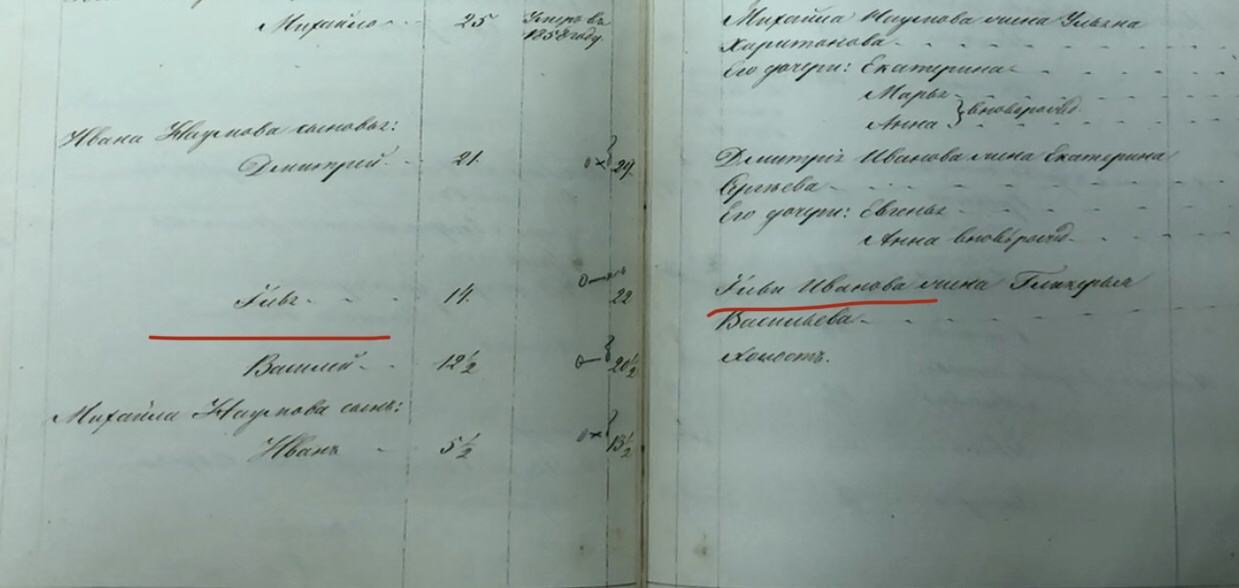 Михайло 25 Умеръ въ
1858 году.
Ивана Наумова сыновья:
Дмитрій 21. 29.
Илья 14. 22
Василій 12½ 20½
Михайла Наумова сынъ:
Иванъ 5½ 13½
Михайла Наумова жена Ульяна
Харитонова
Его дочери: Екатерина
Марья
Анна } вновьрожд.
Дмитрія Иванова жена Екатерина
Сергѣева
Его дочери: Евгенья
Анна вновьрожд.
Ильи Иванова жена Гликерья
Васильева
холостъ.